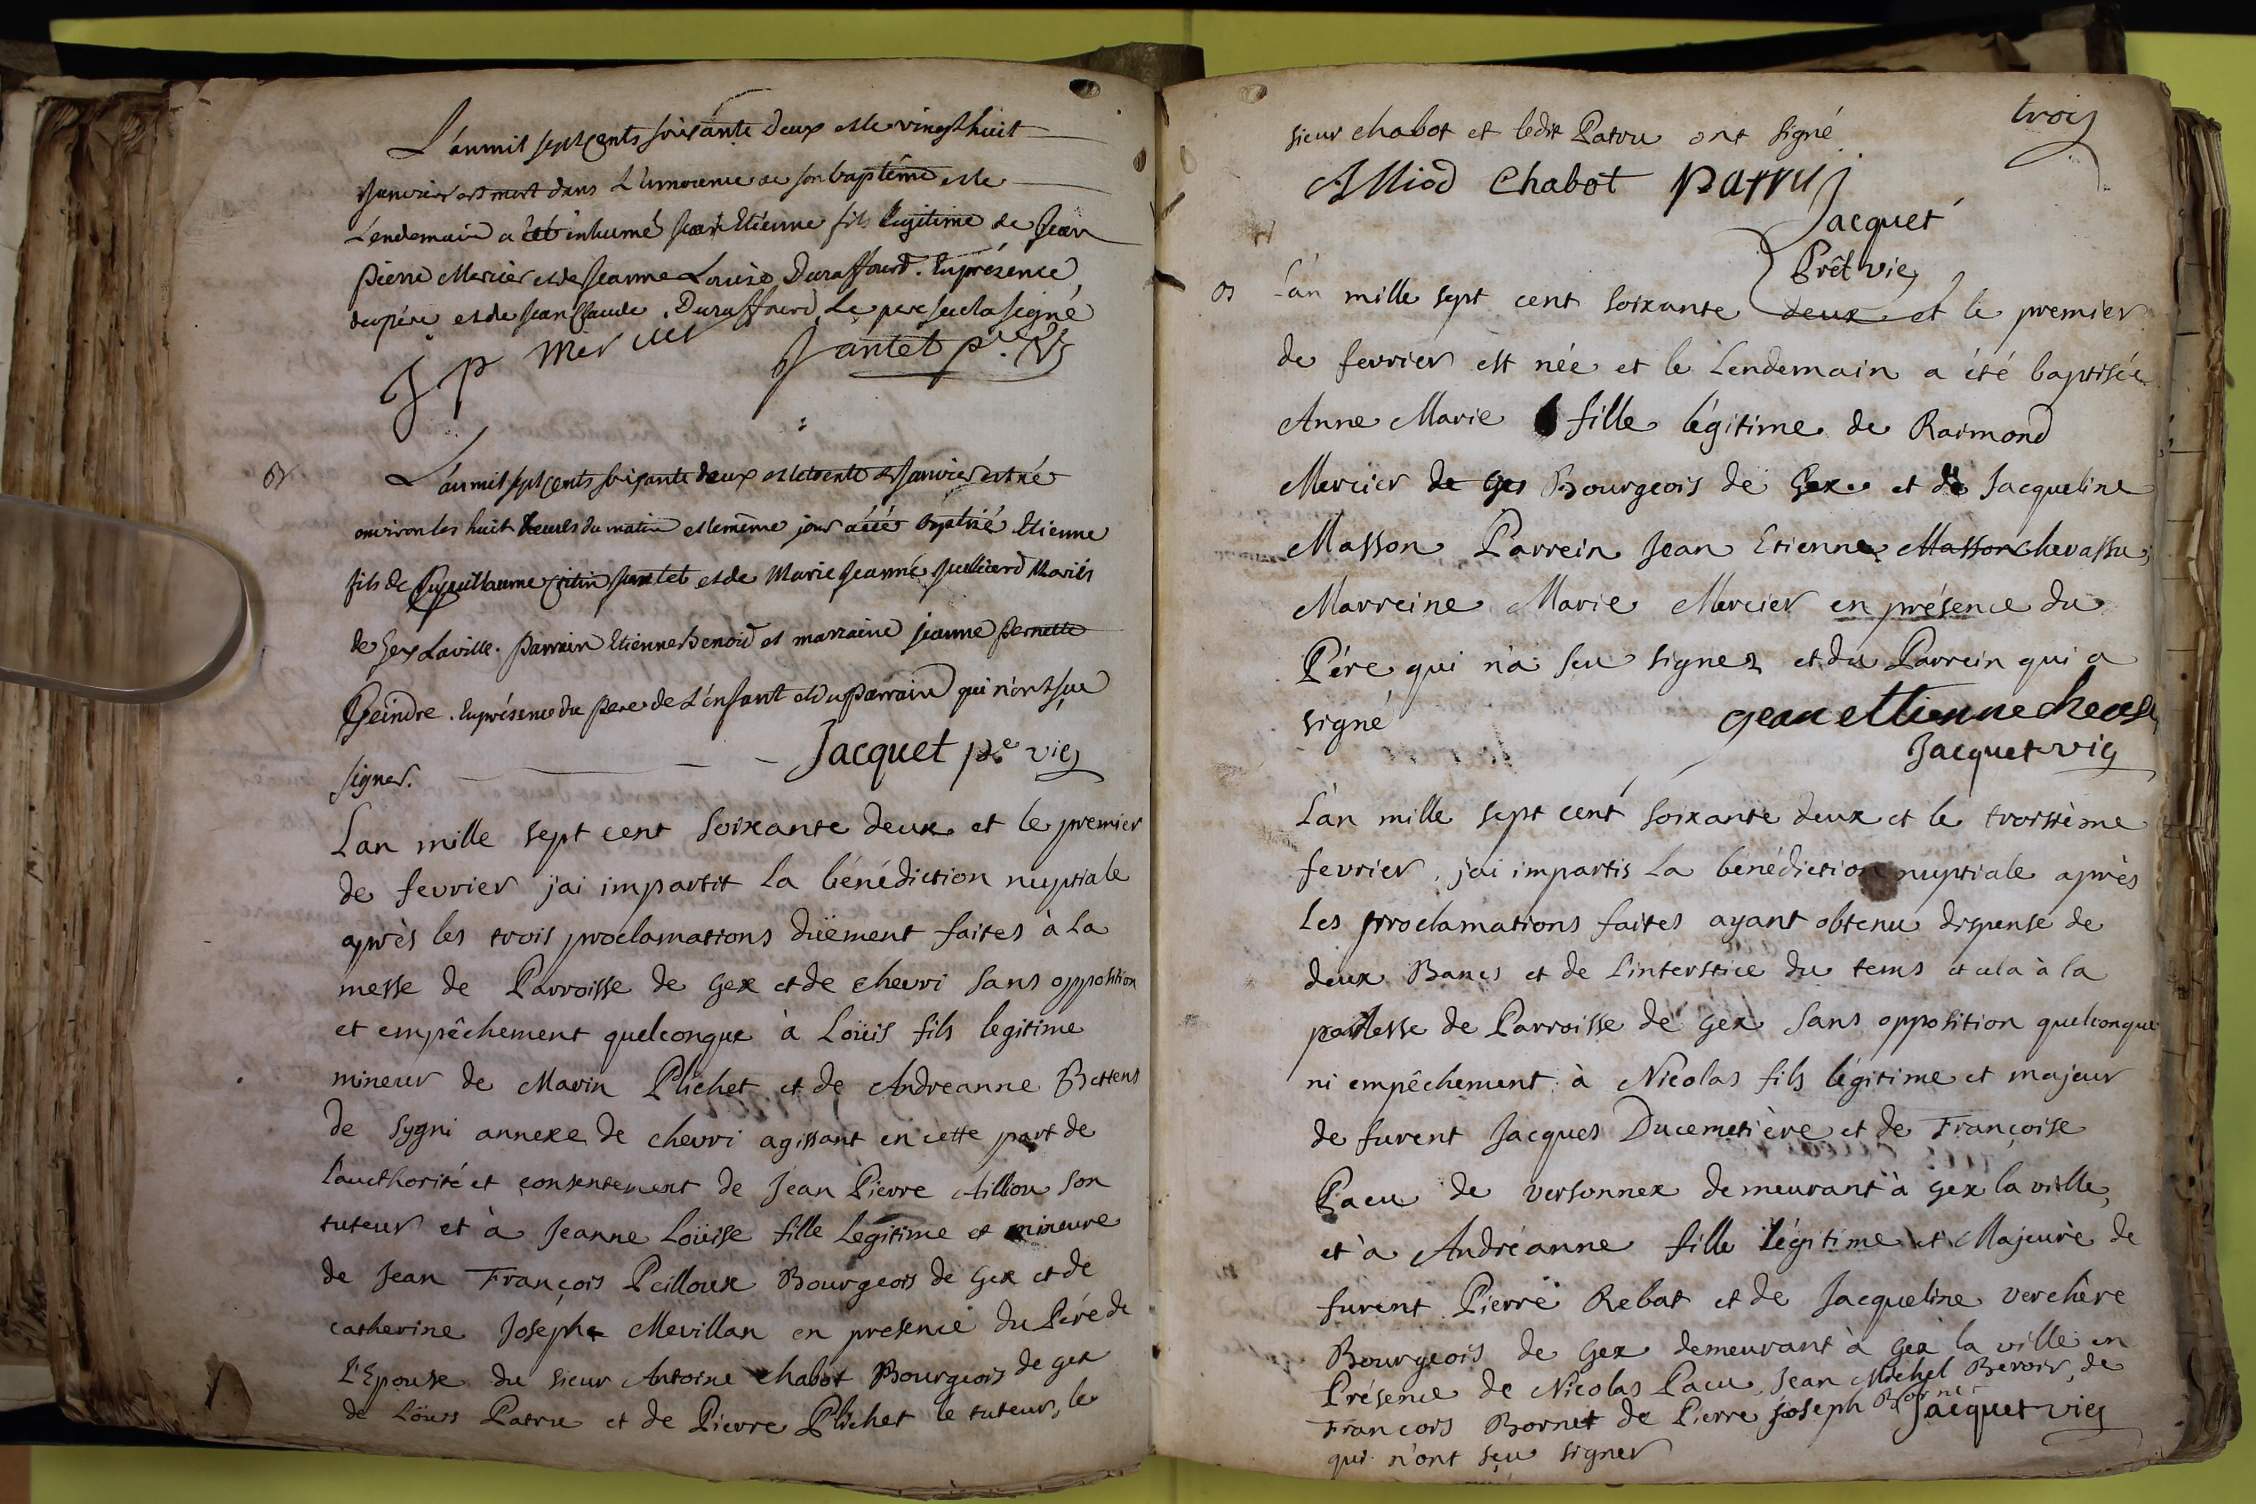 L'an mil sept cents soixante deux et le vingt huit
Janvier est mort dans L'innocence de son baptême et le
Lendemain a été inhumé Jean Etienne fils legitime de Jean
Pierre Mercier et de Jeanne Louise Duraffourd. En présence
du père et de Jean Claude Duraffourd Le pere seul a signé
J P mercier
Jantet p.re vic
B
L'an mil sept cents soixante deux et le trente de Janvier est né
environ les huit heures du matin et le même jour a été Baptisé Etienne
fils de Guillaume Jantet et de Marie Jeanne Juillard Mariés
de Gex Laville. Parrain Etienne Benoid et marraine jeanne pernette
Geindre. En présence du Pere de L'enfant et du parrain qui n'ont sçu
signer.
Jacquet p.e vic
Lan mille sept cent soixante deux et le premier
de fevrier j'ai impartit la bénédiction nuptiale
après les trois proclamations düement faites à la
messe de Parroisse de Gex et de chevri sans opposition
et empêchement quelconque à Loüis fils legitime
mineur de Marin Plichet et de Andreanne Bettens
de sygni annexe de chevri agissant en cette part de
l'aucthorité et consentement de Jean Pierre Aillion son
tuteur et à Jeanne Loüise fille Legitime et mineure
de Jean François Peilloux Bourgeois de Gex et de
catherine Josephe Mevillan en presence du Pére de
l'Epouse du sieur Antoine chabot Bourgeois de gex
de Loüis Patru et de Pierre Plichet le tuteur, le
trois
sieur chabot et ledit Patru ont signé
Alliod Chabot patru
Jacquet
Prêt vic
B
L'an mille sept cent soixante deux et le premier
de fevrier est née et le Lendemain a été baptisée
Anne Marie fille légitime de Raimond
Mercier de Gex Bourgeois de Gex et de Jacqueline
Masson Parrein Jean Etienne Masson chevassu;
Marreine Marie Mercier en présence du
Pére qui n'a seu signer et du Parrein qui a
signé
jean ettienne chevasu
Jacquet vic
L'an mille sept cent soixante deux et le troisième
fevrier j'ai impartis la bénédiction nuptiale après
les proclamations faites ayant obtenu dispense de
deux Bancs et de l'interstice du tems et cela à la
messe de Parroisse de Gex sans opposition quelconque
ni empêchement à Nicolas fils légitime et majeur
de furent Jacques Ducemetière et de Françoise
Pacu de versonnex demeurant à Gex la ville,
et à Andréanne fille légitime et Majeure de
furent Pierre Rebat et de Jacqueline verchère
Bourgeois de Gex demeurant à Gex la ville en
Présence de Nicolas Pacu, Jean Michel Benoir, de
François Bornet de Pierre joseph Bornet
qui n'ont sçu signer
Jacquet vic